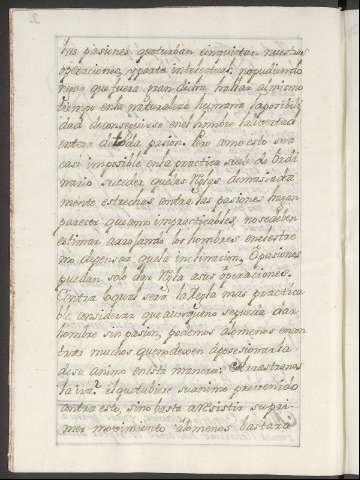 las pasiones que turban è inquietan nuestras
operaciones, y parte intelectual: no pudiendo
negar que fuera gran dicha hallar al mismo
tiempo en la naturaleza humana la posibili
dad de conseguirse en el hombre la libertad
entera de toda pasion. Pero como esto sea
casi imposible en la practica suele de Ordi
nario suceder, que las Reglas demasiada
mente estrechas contra las pasiones hagan
parecer que como impracticables, no se deben
estimar
los hombres en el estre
mo de pensar que la inclinacion, ò pasiones
puedan solo dar regla a sus operaciones.
Contra
será la Regla mas practica
ble considerar que aunque no se pueda dar
hombre sin pasion, podemos a lo menos encon
trar muchos que no dexen aposesionarla
de su animo en esta manera: Arrastranos
la ira? el que tubiere su animo prevenido
contra esta, sino basta à resistir su pri
mer movimiento a lo menos bastará